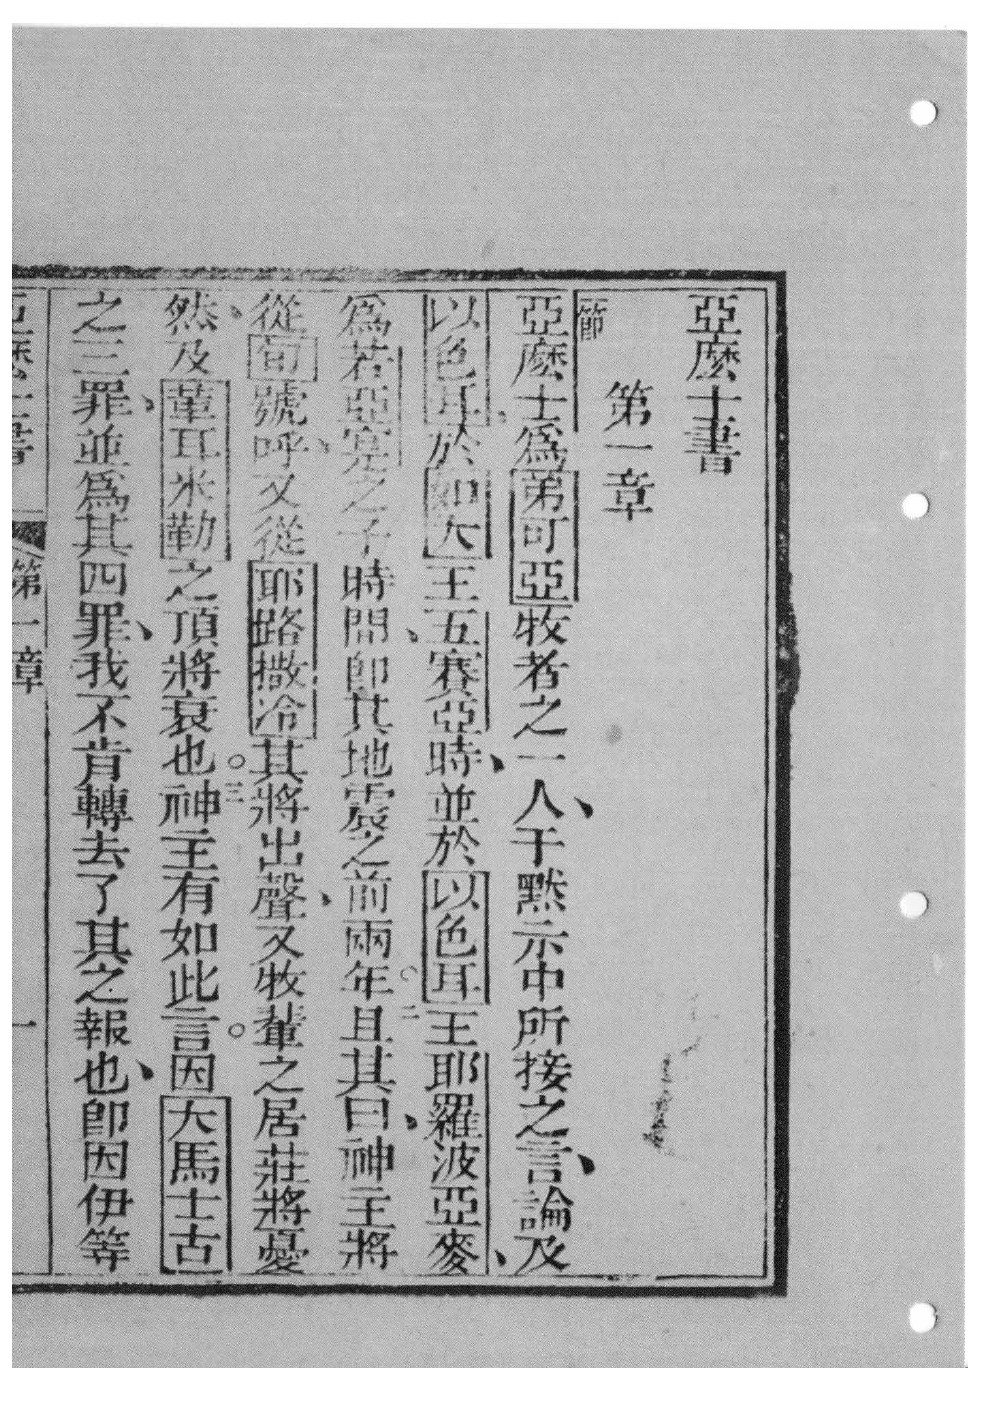 亞麽士書
第一章
節
亞麽士爲第可亞牧者之一人、于默示中所接之言、論及
以色耳、於如大王五賽亞時、並於以色耳王耶羅波亞麥、
爲若亞寔之子時間、卽其地震之前兩年。二且其曰、神主將
從旬號呼、又從耶路撒冷其將出聲、又牧輩之居莊將憂
然、及葷耳米勒之頂將衰也。三神主有如此言。因大馬士古
之三罪、並爲其四罪、我不肯轉去了其之報也、卽因伊等
亞麽士書 第一章 一